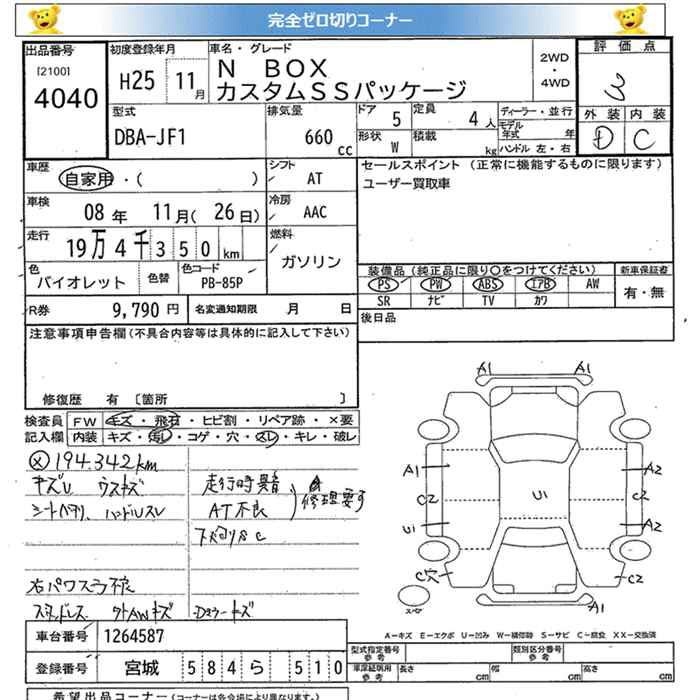 完全ゼロ切りコーナー
出品番号
[2100]
4040
初度登録年月
H25 11月
車名・グレード
N BOX
カスタムSSパッケージ
2WD
・
4WD
評価点
3
外装 内装
D C
型式
DBA-JF1
排気量
660 cc
ドア 5
定員 4人
形状 W
積載 kg
ディーラー・並行
モデル
年式 年
ハンドル 左・右
車歴
自家用・( )
シフト
AT
車検
08年 11月(26日)
冷房
AAC
走行
19万4千350km
燃料
ガソリン
色
バイオレット
色替
色コード
PB-85P
R券 9,790円
名変通知期限 月 日
セールスポイント (正常に機能するものに限ります)
ユーザー買取車
装備品(純正品に限り○をつけてください)
PS PW ABS エアB AW
SR ナビ TV カワ
新車保証書
有・無
後日品
注意事項申告欄(不具合内容等は具体的に記入して下さい)
修復歴 有 [箇所 ]
検査員
記入欄
FW キズ・飛石・ヒビ割・リペア跡・×要
内装 キズ・汚レ・コゲ・穴・スレ・キレ・破レ
194.342km
シートヘタリ、ハンドルスレ
走行時異音
AT不良
修理要す
下廻りSC
A1 A1
A1 A2
C2 U1 C2
U1 A2
C穴 C2
A1
スペア
A-キズ E-エクボ U-凹み W-補修跡 S-サビ C-腐食 XX-交換済
車台番号 1264587
登録番号 宮城 584 ら 510
型式指定番号
参考
類別区分番号
参考
車庫証明用
参考
長さ cm 幅 cm 高さ cm
希望出品コーナー(コーナーは各会場により異なります。)